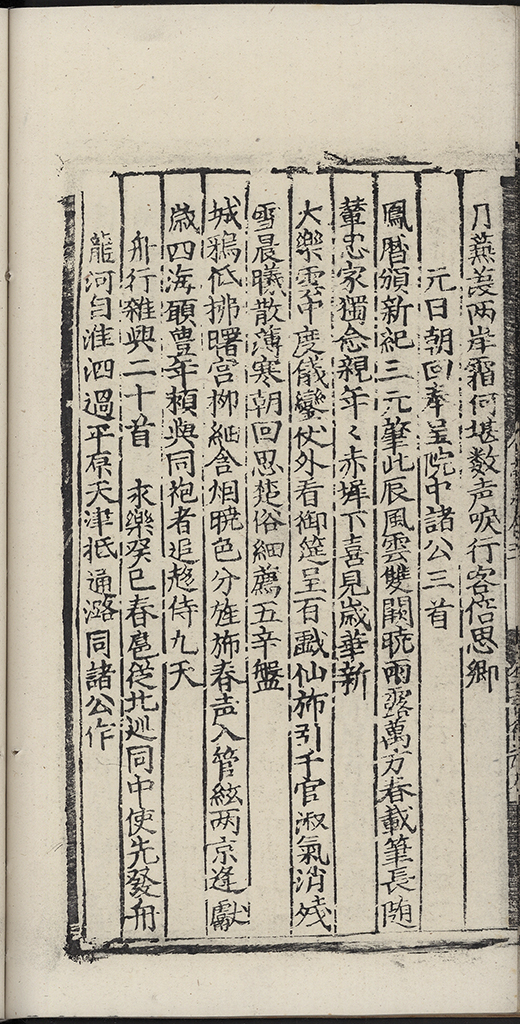 月蕪萋两岸霜何堪数声唳行客倍思鄉
元日朝回奉呈院中諸公三首
鳳曆頒新紀三元肇此辰風雲雙闕曉雨露萬方春載筆長随
輦忠家獨念親年〻赤墀下喜見歳華新
大樂雲中度儀鑾仗外看御筵呈百戱仙斾引千官淑氣消殘
雪晨曦散薄寒朝回思楚俗細薦五辛盤
城鴉低拂曙宫柳細含烟曉色分旌斾春声入管絃两京逢獻
歳四海願豊年頼與同袍者追趨侍九天
舟行雜興二十首 永樂癸巳春扈從北巡同中使先發舟
龍河自淮泗過平原天津抵通潞同諸公作